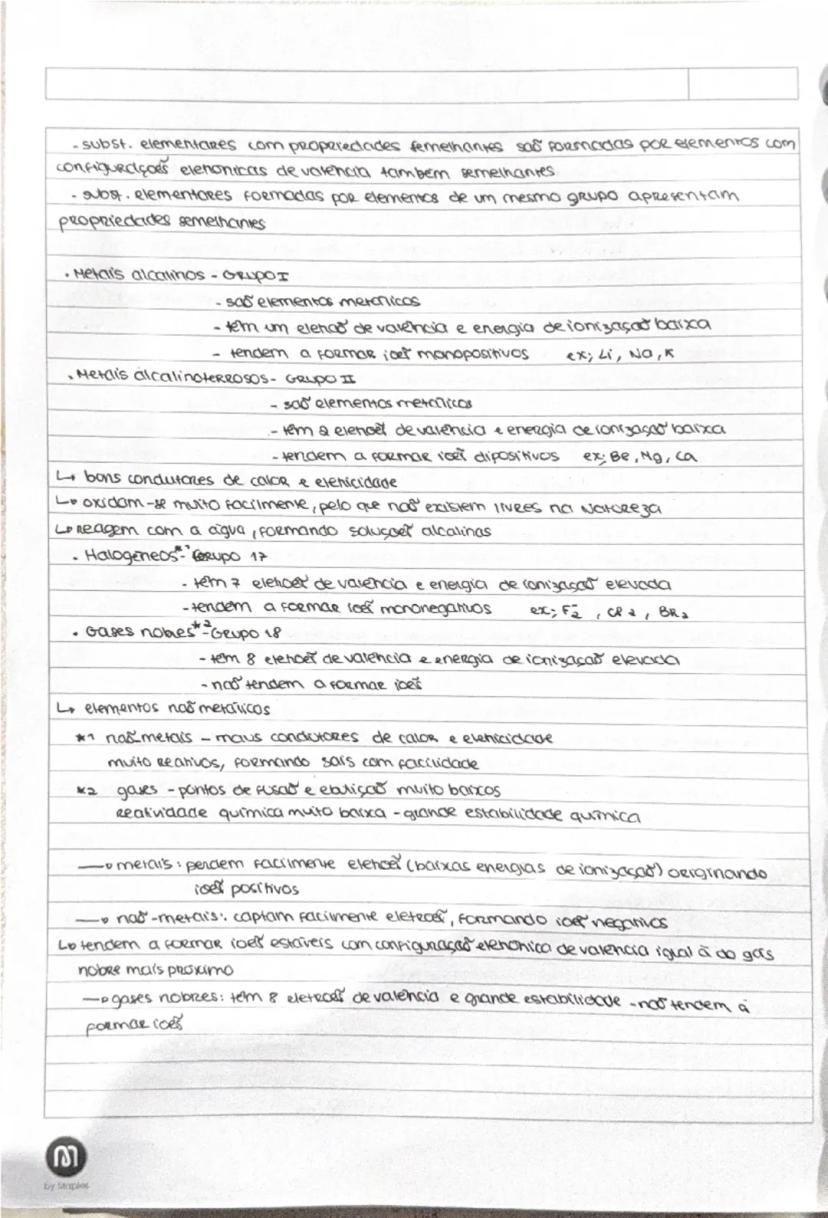 - subst. elementares com propriedades semelhantes são formadas por elementos com
configurações eletrónicas de valência também semelhantes
- subst. elementares formadas por elementos de um mesmo grupo apresentam
propriedades semelhantes
. Metais alcalinos - Grupo I
- são elementos metálicos
- têm um eletrão de valência e energia de ionização baixa
- tendem a formar iões monopositivos ex; Li, Na, K
. Metais alcalinoterrosos - Grupo II
- são elementos metálicos
- têm 2 eletrões de valência e energia de ionização baixa
- tendem a formar iões dipositivos ex; Be, Mg, Ca
↳ bons condutores de calor e eletricidade
↳ oxidam-se muito facilmente, pelo que não existem livres na Natureza
↳ reagem com a água, formando soluções alcalinas
. Halogéneos*1 - Grupo 17
- têm 7 eletrões de valência e energia de ionização elevada
- tendem a formar iões mononegativos ex; F2, Cl2, Br2
. Gases nobres*2 - Grupo 18
- têm 8 eletrões de valência e energia de ionização elevada
- não tendem a formar iões
↳ elementos não metálicos
*1 não metais - maus condutores de calor e eletricidade
muito reativos, formando sais com facilidade
*2 gases - pontos de fusão e ebulição muito baixos
reatividade química muito baixa - grande estabilidade química
→ metais: perdem facilmente eletrões (baixas energias de ionização) originando
iões positivos
→ não-metais: captam facilmente eletrões, formando iões negativos
↳ tendem a formar iões estáveis com configuração eletrónica de valência igual à do gás
nobre mais próximo
→ gases nobres: têm 8 eletrões de valência e grande estabilidade - não tendem a
formar iões
by Staples